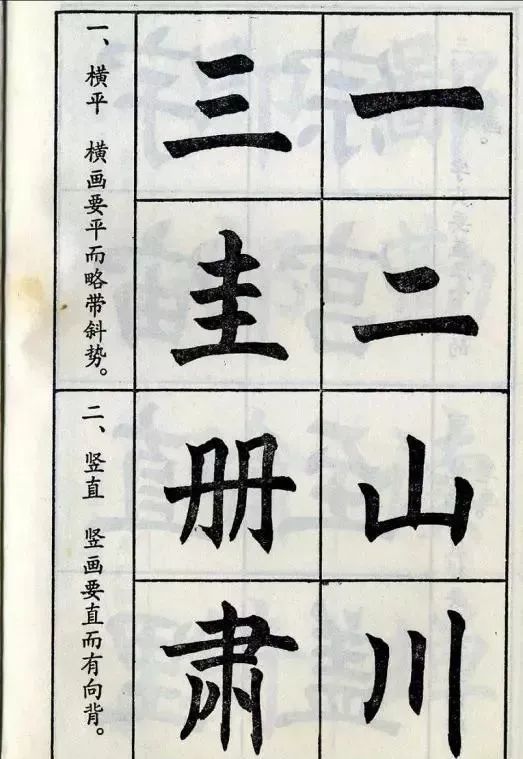 一
二
三
圭
一、横平 横画要平而略带斜势。
山
川
册
肃
二、竖直 竖画要直而有向背。